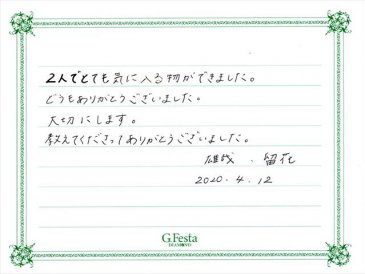 2人でとても気に入る物ができました。
どうもありがとうございました。
大切にします。
教えてくださってありがとうございました。
雄哉 . 留花
2020. 4. 12
G.Festa
DIAMOND